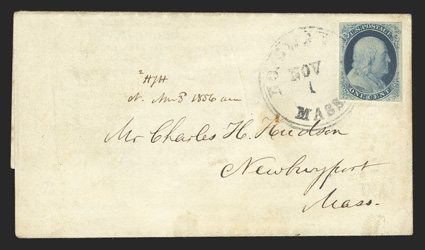 U.S. POSTAGE
ONE CENT
NOV
1
MASS
1856
Mr Charles H. Hudson
Newburyport
Mass.